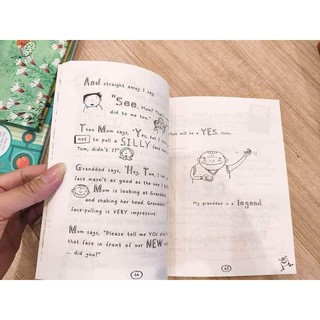 And straight away I say,
"SEE, Mom?
did to me too."
Then Mom says, "Yes, but I
not to pull a SILLY face
Tom, didn't I?"
Granddad says, "Hey, Tom, I
face wasn't as good as the one I
Mom is looking at Granddad
and shaking her head. Granddad's
face-pulling is VERY impressive.
Mom says, "Please tell me YOU didn't
that face in front of our NEW
... did you?"
44
that will be a YES, then.
My granddad is a legend.
45